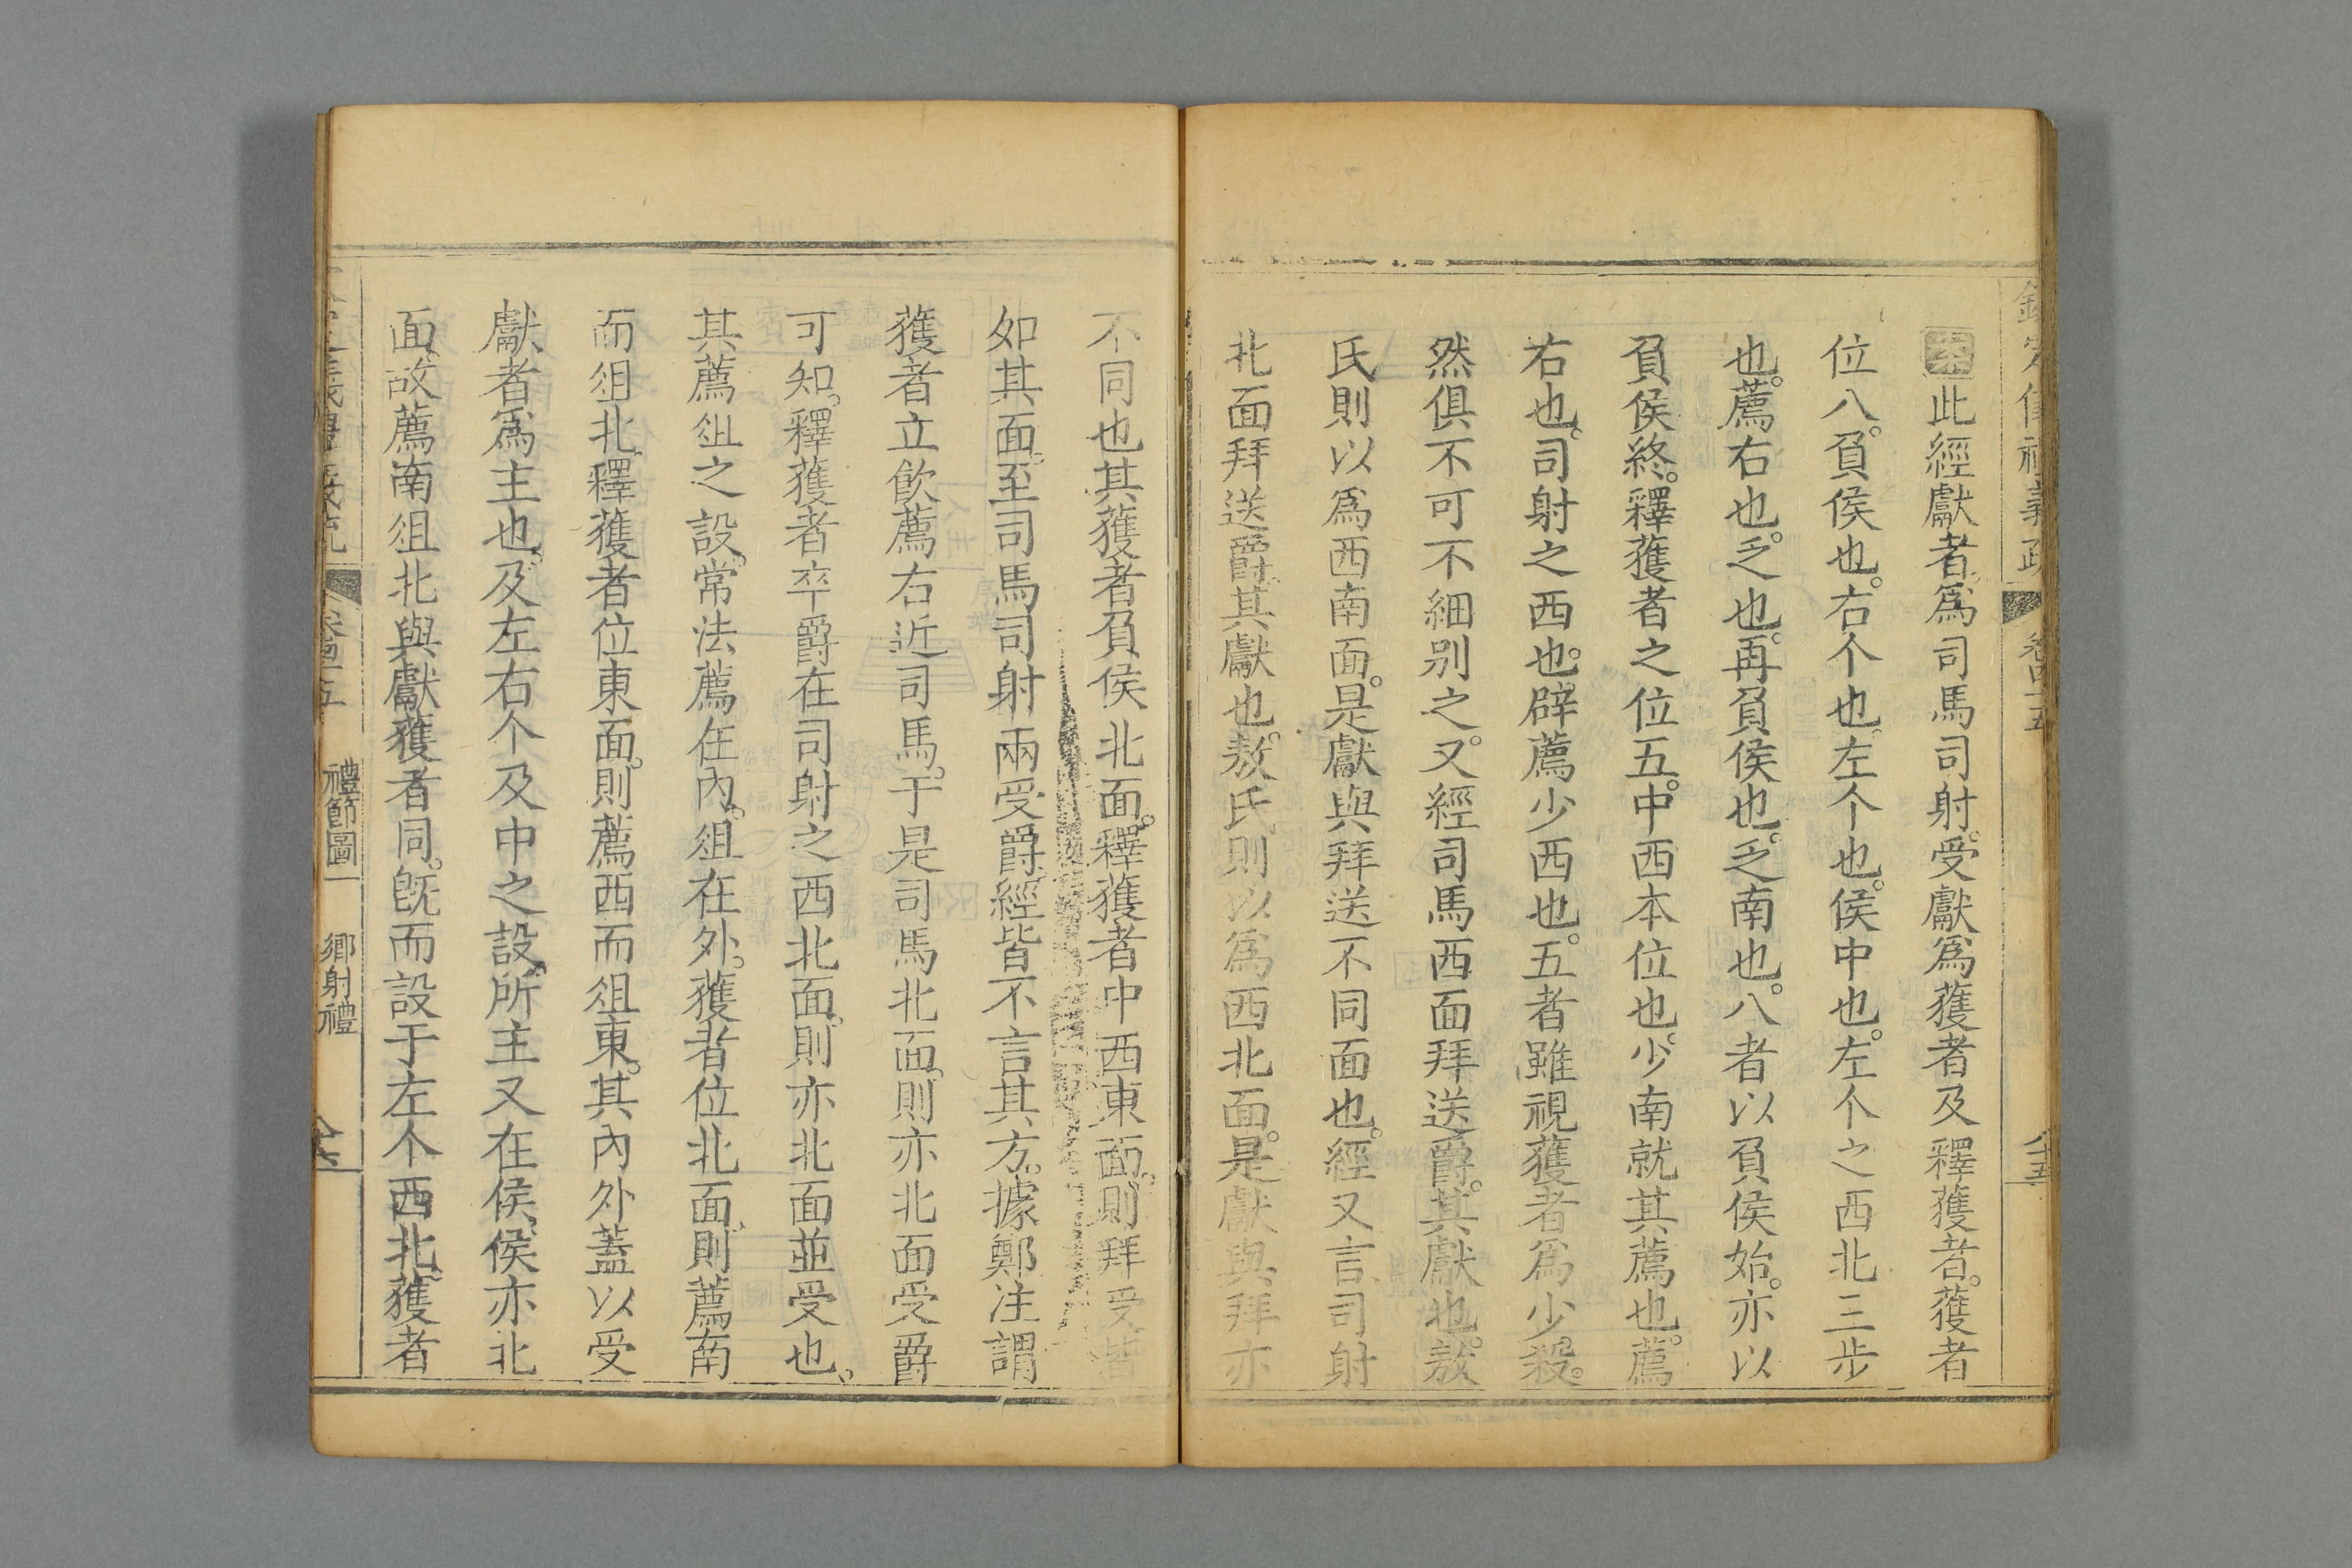 欽定儀禮義疏 卷四十五 八十五
案此經獻者爲司馬司射受獻爲獲者及釋獲者獲者
位八負侯也右个也左个也侯中也左个之西北三步
也薦右也乏也再負侯也乏南也八者以負侯始亦以
負侯終釋獲者之位五中西本位也少南就其薦也薦
右也司射之西也辟薦少西也五者雖視獲者爲少殺
然俱不可不細别之又經司馬西面拜送爵其獻也敖
氏則以爲西南面是獻與拜送不同面也經又言司射
北面拜送爵其獻也敖氏則以爲西北面是獻與拜亦
不同也其獲者負侯北面釋獲者中西東面則拜受皆
如其面至司馬司射兩受爵經皆不言其方據鄭注謂
獲者立飲薦右近司馬于是司馬北面則亦北面受爵
可知釋獲者卒爵在司射之西北面則亦北面並受也
其薦俎之設常法薦在內俎在外獲者位北面則薦南
而俎北釋獲者位東面則薦西而俎東其內外蓋以受
獻者爲主也及左右个及中之設所主又在侯侯亦北
面故薦南俎北與獻獲者同旣而設于左个西北獲者
禮節圖一 鄉射禮